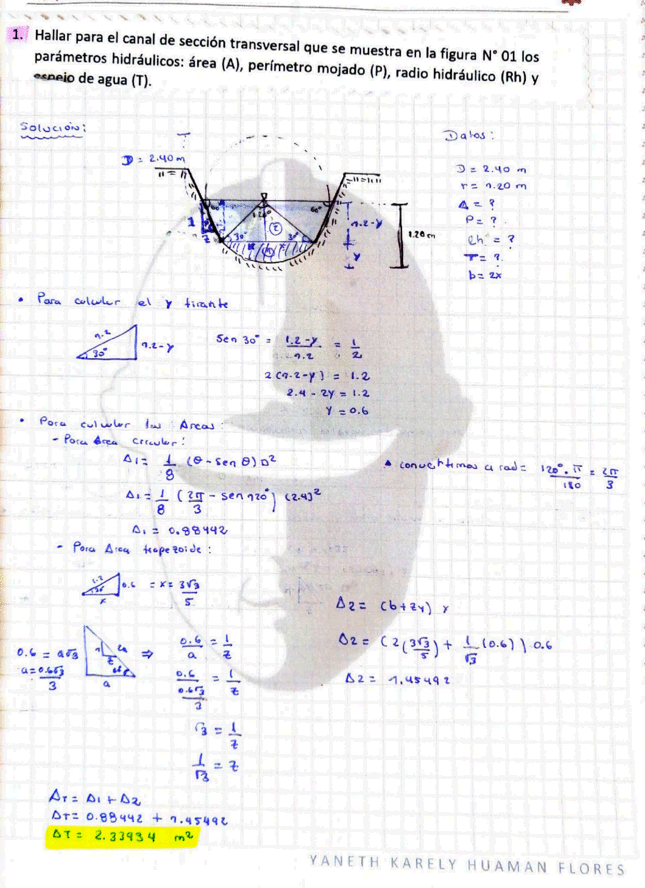 1. Hallar para el canal de sección transversal que se muestra en la figura N° 01 los
parámetros hidráulicos: área (A), perímetro mojado (P), radio hidráulico (Rh) y
espejo de agua (T).
Solución:
D = 2.40 m
60°
60°
120°
1
z
30°
30°
x
x
①
②
1.2-y
y
1.20 m
Datos:
D = 2.40 m
r = 1.20 m
A = ?
P = ?
Rh = ?
T = ?
b = 2x
• Para calcular el y tirante
1.2
30°
1.2-y
Sen 30° = 1.2-y / 1.2 = 1/2
2(1.2-y) = 1.2
2.4 - 2y = 1.2
y = 0.6
• Para calcular las Areas:
- Para Area circular:
A1 = 1/8 (θ - sen θ) D²
▲ convertimos a rad = 120° · π / 180 = 2π/3
A1 = 1/8 (2π/3 - sen 120°) (2.4)²
A1 = 0.88442
- Para Area trapezoide:
1.2
30°
0.6
x
= x = 3√3/5
A2 = (b+zy) y
A2 = (2(3√3/5) + 1/√3 (0.6)) 0.6
A2 = 1.45492
0.6 = a√3
a = 0.6√3/3
1
2a
z
60°
a
⇒
0.6/a = 1/z
0.6 / (0.6√3/3) = 1/z
√3 = 1/z
1/√3 = z
AT = A1 + A2
AT = 0.88442 + 1.45492
AT = 2.33934 m²
YANETH KARELY HUAMAN FLORES